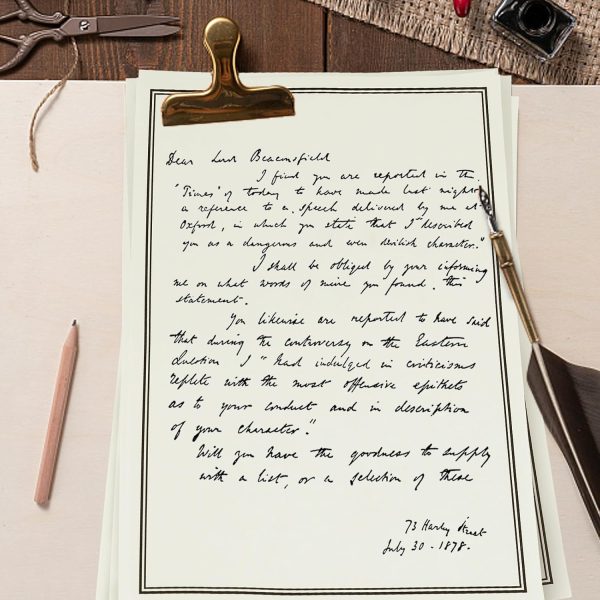 Dear Lord Beaconsfield
I find you are reported in the
"Times" of today to have made last night
a reference to a speech delivered by me at
Oxford, in which you state that I "described
you as a dangerous and even devilish character."
I shall be obliged by your informing
me on what words of mine you found this
statement.
You likewise are reported to have said
that during the controversy on the Eastern
Question I "had indulged in criticisms
replete with the most offensive epithets
as to your conduct and in description
of your character."
Will you have the goodness to supply
with a list, or a selection of these
73 Harley Street
July 30 - 1878.